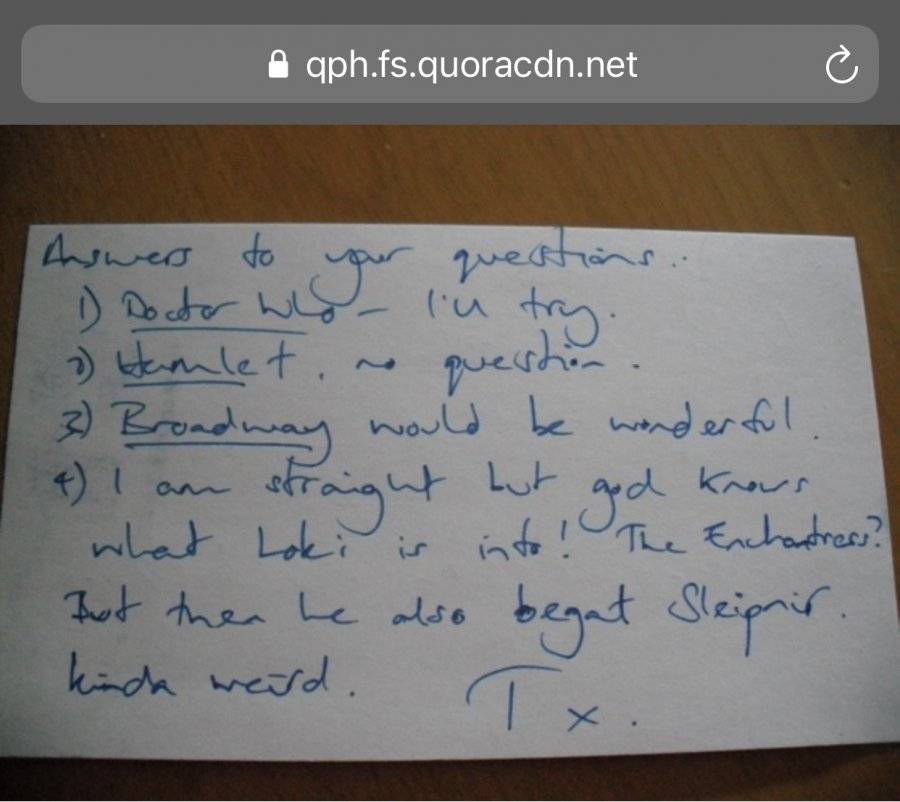 qph.fs.quoracdn.net
Answers to your questions..
1) Doctor Who – I'll try.
2) Hamlet, no question.
3) Broadway would be wonderful.
4) I am straight but god knows
what Loki is into! The Enchantress?
But then he also begat Sleipnir.
kinda weird.
T x.